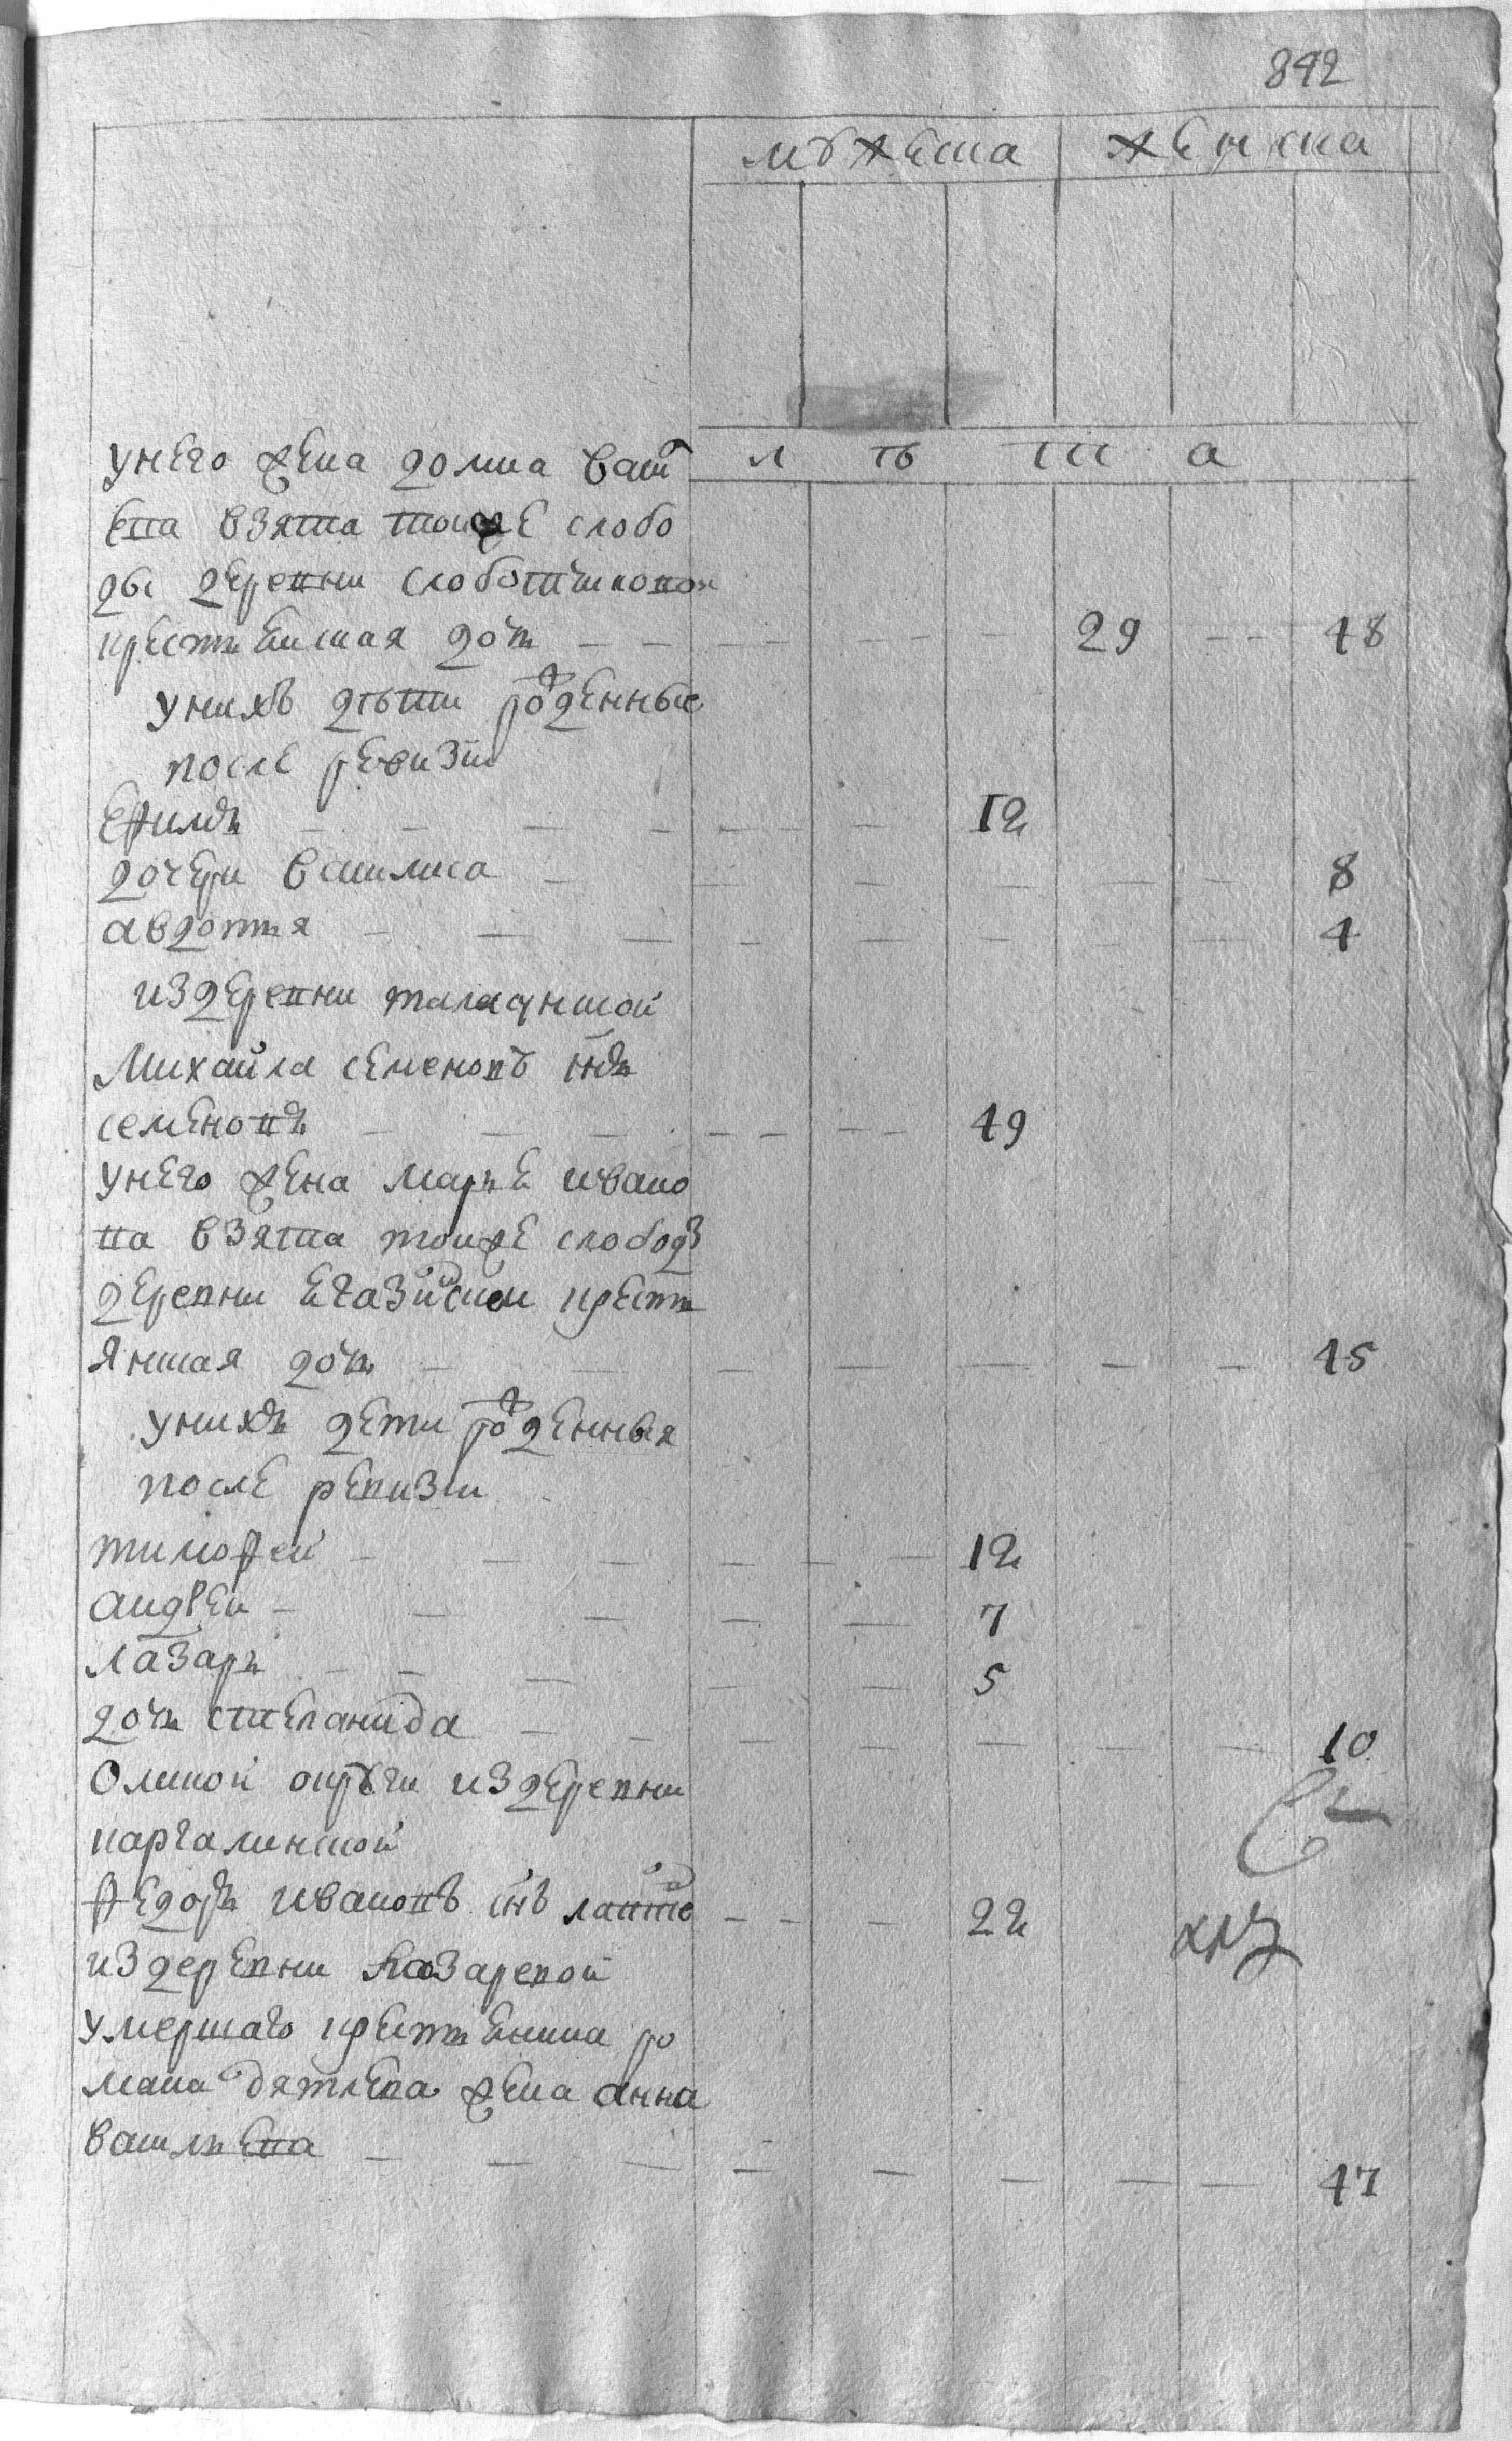 842
мужеска женска
лѣта
у него жена домна васил
ева взята тойже слобо
ды деревни слоботчиковой
крестьянская дочь 29 48
у нихъ дѣти рожденные
после ревизіи
ефимъ 12
дочери василиса 8
авдотья 4
из деревни
михайла семеновъ снъ
семеновъ 49
у него жена марье ивано
ва взята тойже слободы
деревни кресть
янская дочь 45
у нихъ дети рожденныя
после ревизіи
тимофей 12
андрей 7
лазарь 5
дочь степанида 10
Омской округи из деревни
каргалинской
федоръ ивановъ снъ 22
из деревни назаревой
умершаго крестьянина ро
мана дятлева жена анна
васильева 47